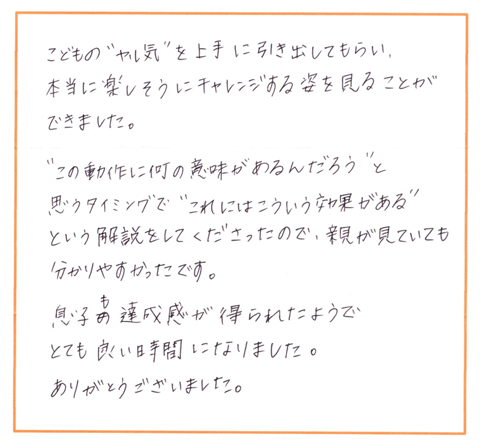 こどもの"ヤル気"を上手に引き出してもらい、
本当に楽しそうにチャレンジする姿を見ることが
できました。
"この動作に何の意味があるんだろう"と
思うタイミングで"これにはこういう効果がある"
という解説をしてくださったので、親が見ていても
分かりやすかったです。
息子も達成感が得られたようで
とても良い時間になりました。
ありがとうございました。